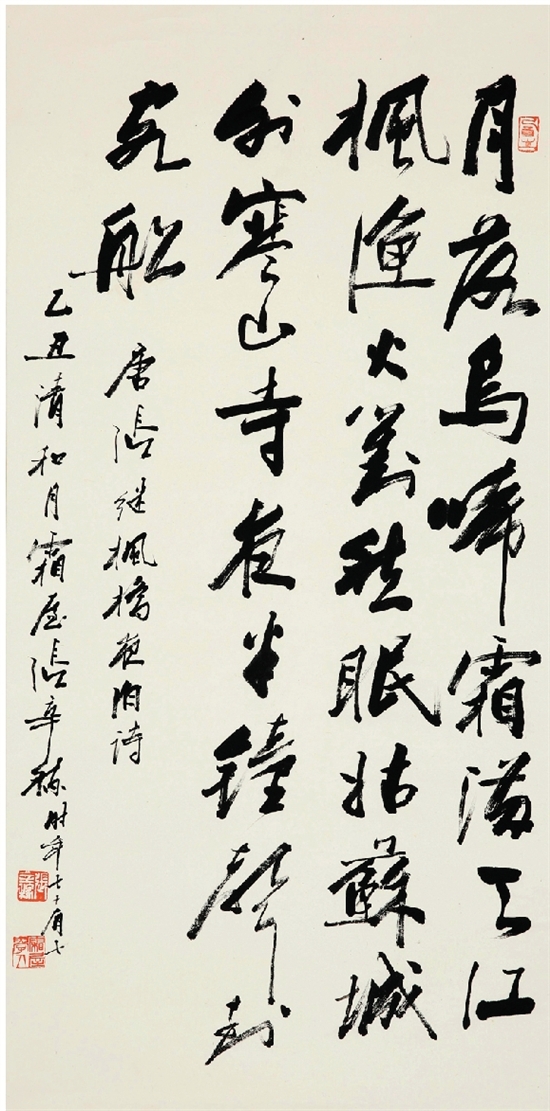 月落烏啼霜滿天江
楓漁火對愁眠姑蘇城
外寒山寺夜半鐘聲到
客船
唐張繼楓橋夜泊詩
乙丑清和月霜屋張辛稼時年七十有七